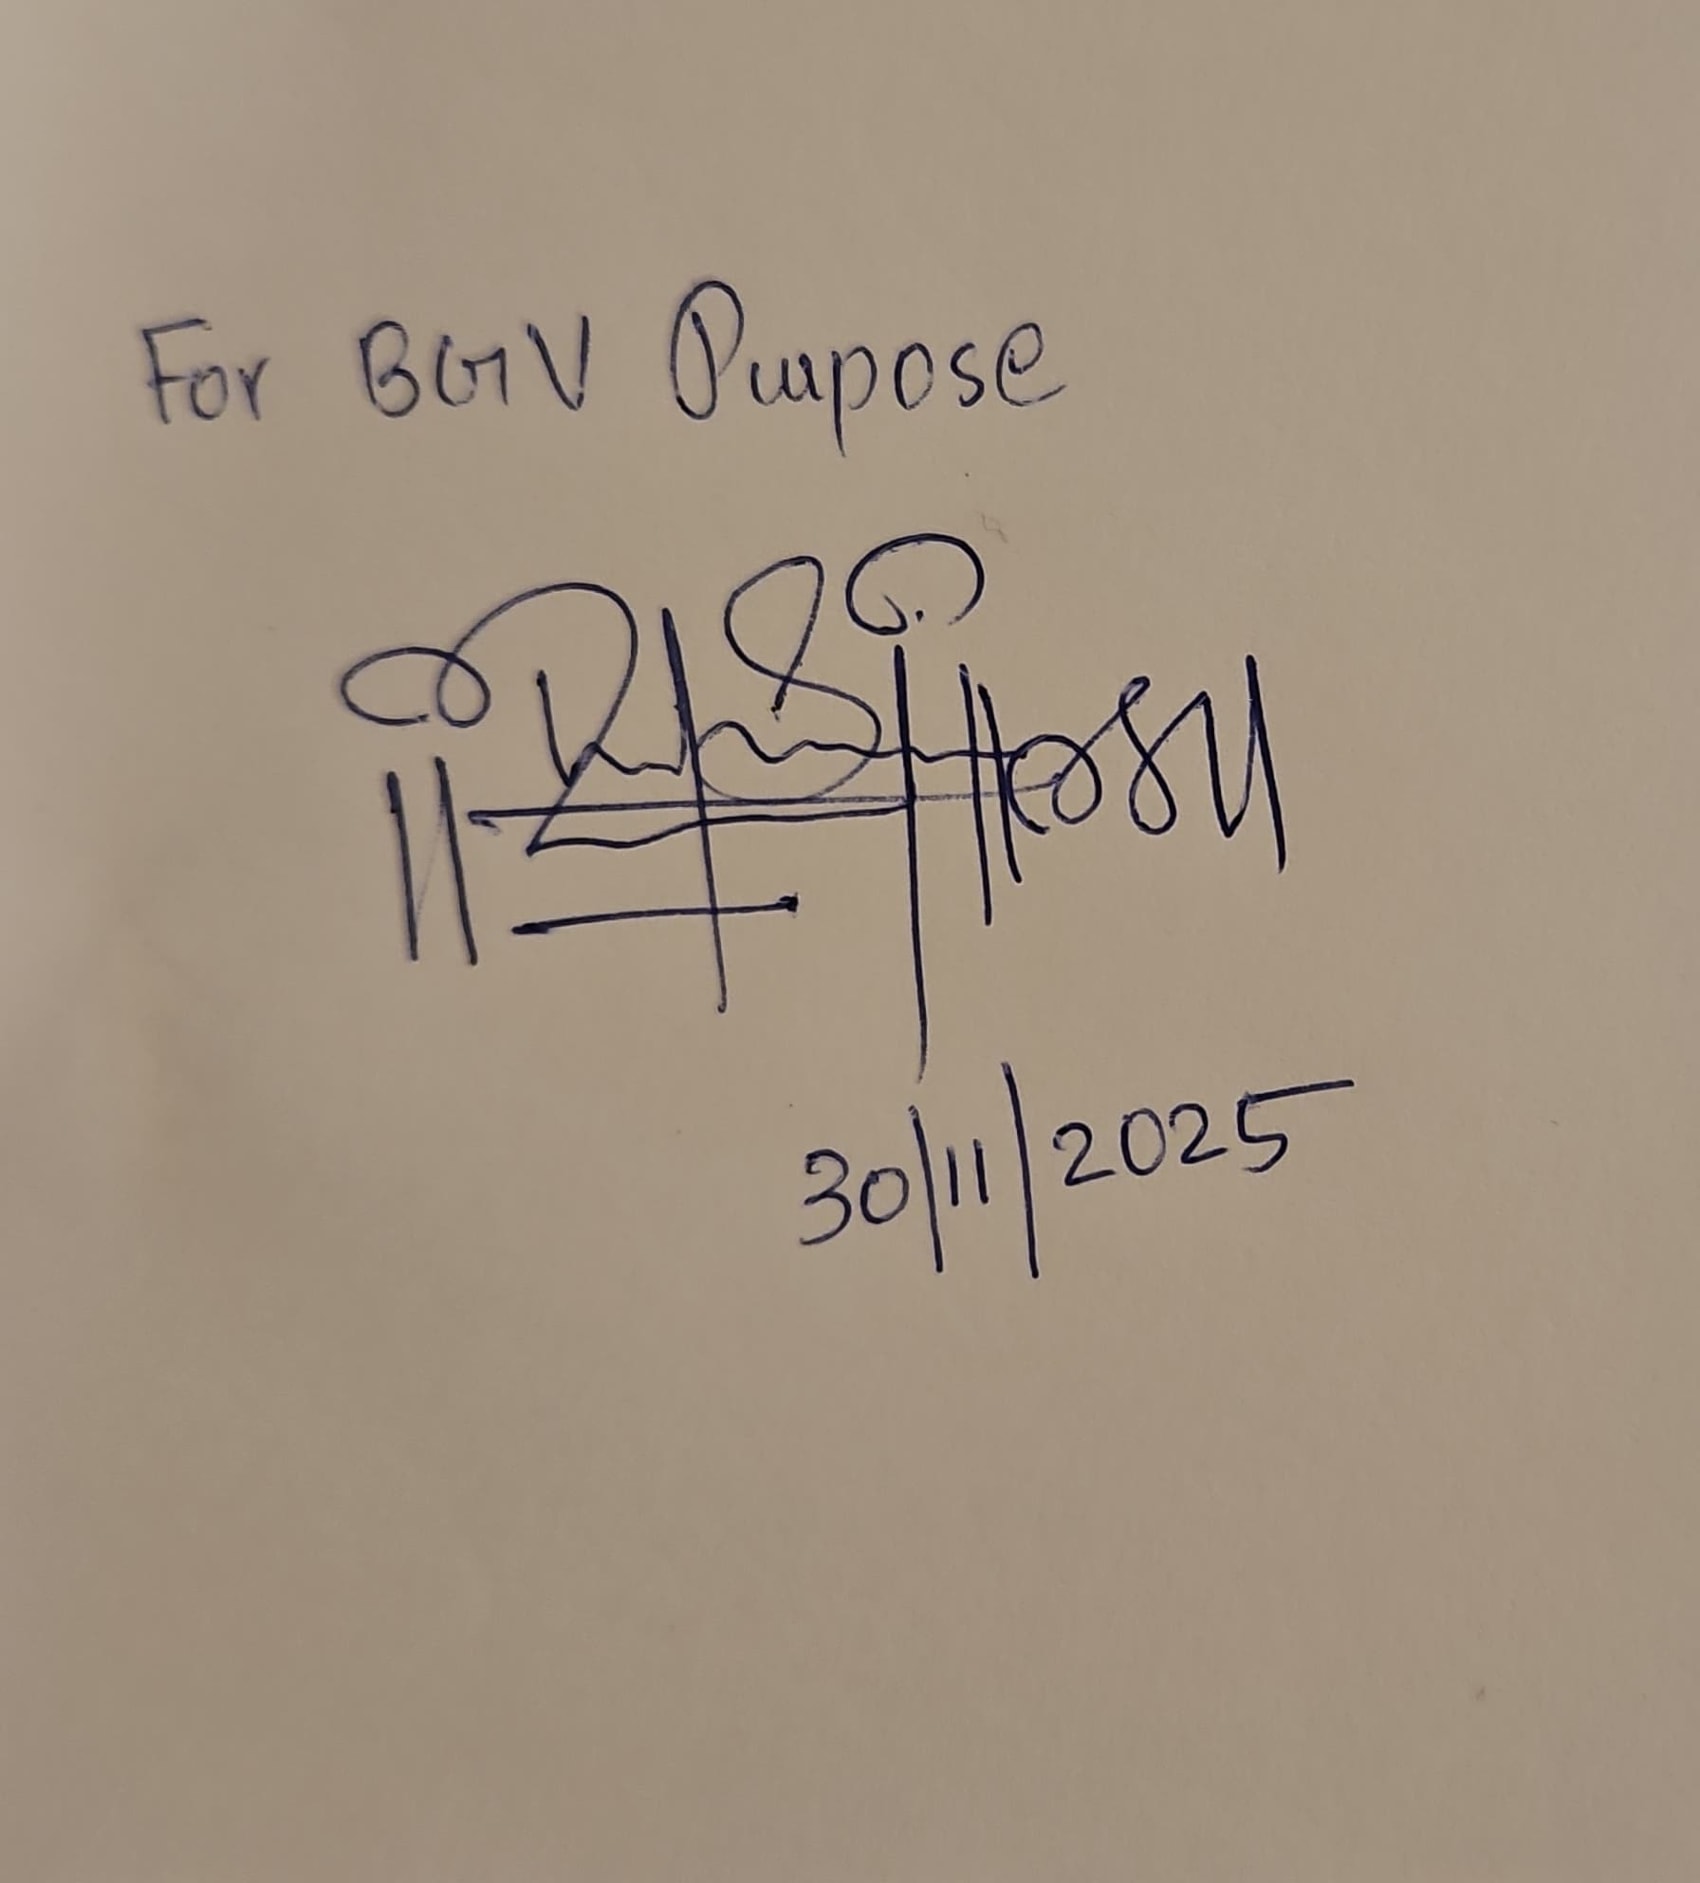 For BGV Purpose
30/11/2025